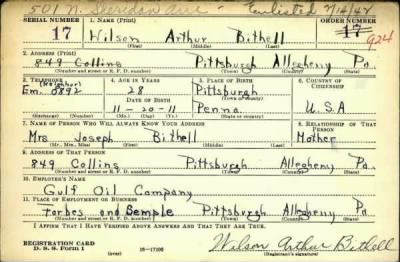 501 N. Enlisted 7/16/42
SERIAL NUMBER 1. NAME (Print) ORDER NUMBER
17 Wilson Arthur Bithell 17
(First) (Middle) (Last) 924
2. ADDRESS (Print)
849 Collins Pittsburgh Allegheny Pa.
(Number and street or R. F. D. number) (Town) (County) (State)
3. TELEPHONE 4. AGE IN YEARS 5. PLACE OF BIRTH 6. COUNTRY OF CITIZENSHIP
(Neighbor)
Em. 0892 28 Pittsburgh
DATE OF BIRTH (Town or county)
11-20-11 Penna. U.S.A
(Exchange) (Number) (Mo.) (Day) (Yr.) (State or country)
7. NAME OF PERSON WHO WILL ALWAYS KNOW YOUR ADDRESS 8. RELATIONSHIP OF THAT PERSON
Mrs Joseph Bithell Mother
(Mr., Mrs., Miss) (First) (Middle) (Last)
9. ADDRESS OF THAT PERSON
849 Collins Pittsburgh Allegheny Pa.
(Number and street or R. F. D. number) (Town) (County) (State)
10. EMPLOYER'S NAME
Gulf Oil Company
11. PLACE OF EMPLOYMENT OR BUSINESS
Forbes and Semple Pittsburgh Allegheny Pa
(Number and street or R. F. D. number) (Town) (County) (State)
I AFFIRM THAT I HAVE VERIFIED ABOVE ANSWERS AND THAT THEY ARE TRUE.
REGISTRATION CARD
D. S. S. Form 1 16-17106 Wilson Arthur Bithell
(over) (Registrant's signature)